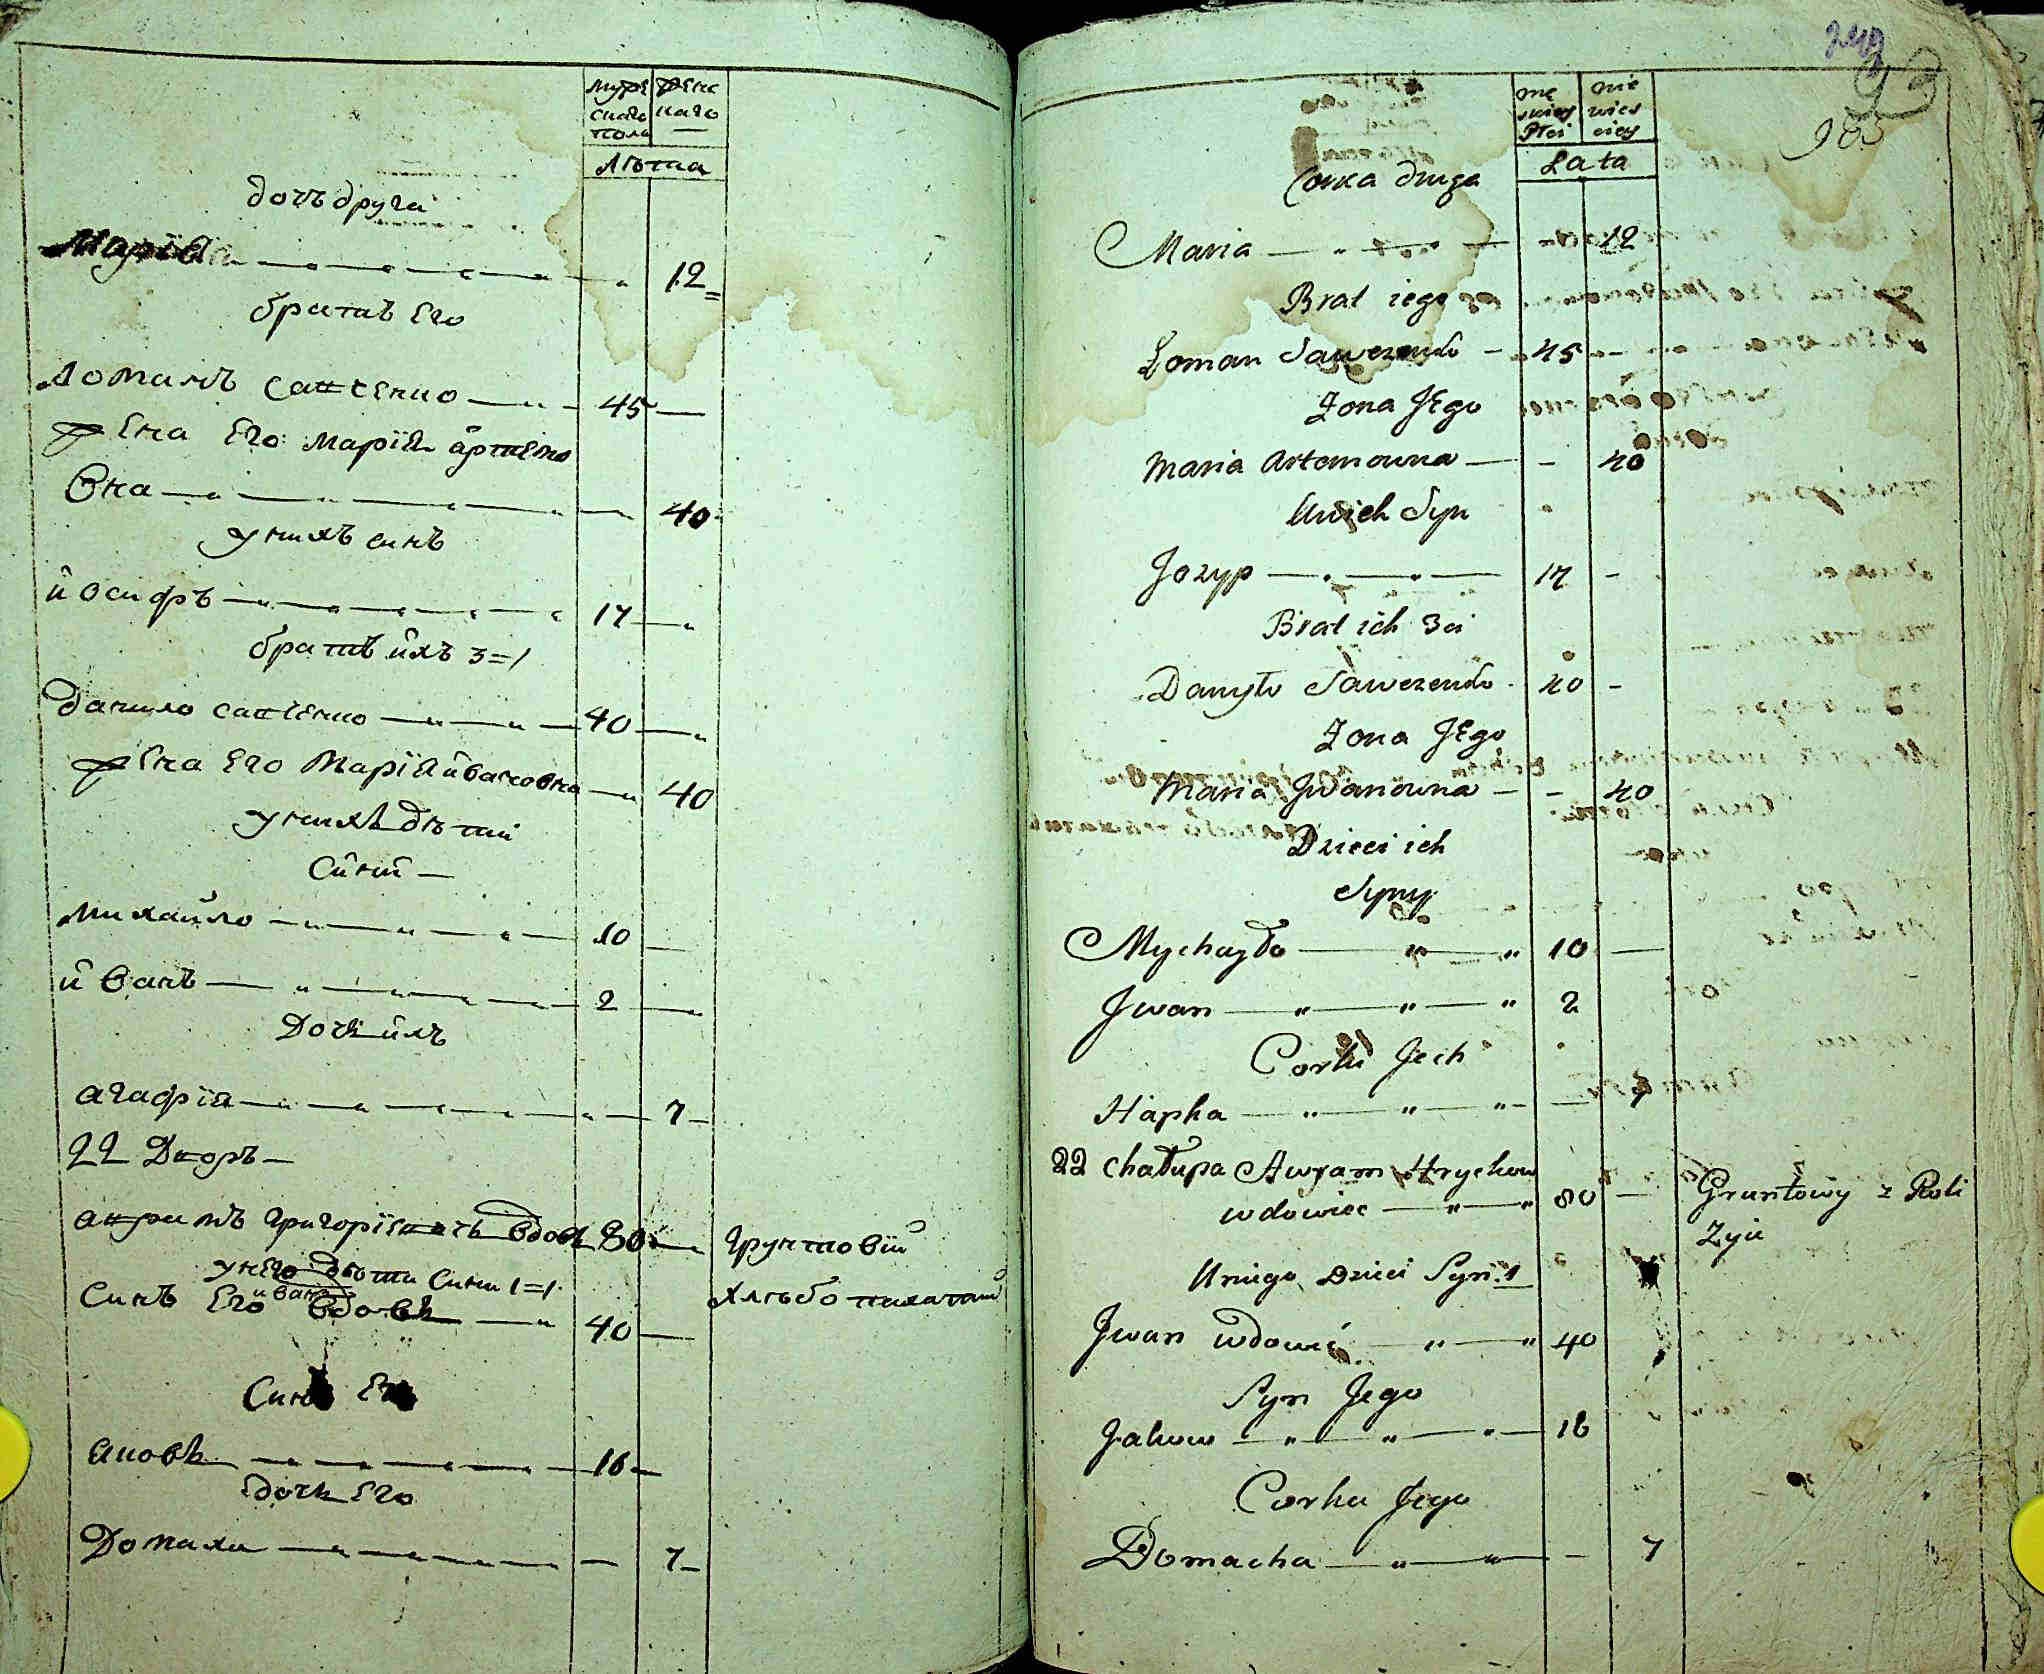 муже
скаго
пола
женс
каго
Лѣта
дочъ друга
Марїя 12
братъ Его
Ломанъ савченко 45
жена Его Марїя артемо
вна 40
у нихъ синъ
йосифъ 17
братъ ихъ 3=й
данило савченко 40
жена Его Марїя йвановна 40
у нихъ дѣтий
Синй
михайло 10
йванъ 2
Дочь йхъ
агафїя 7
22 Дворъ
аврамъ григорїевичъ вдовъ 80 грунтовїй
унего дѣти Сини 1=й хлѣбо пахатай
йванъ
Синъ Его вдовъ 40
Синъ Его
Яковъ 16
дочь Его
Домаха 7
249
93
965
mę
skiey
Płci
nie
wies
ciey
Lata
Corka druga
Maria 12
Brat iego
Loman Sawczenko 45
Żona JEgo
Maria Artemowna 40
Unich Syn
Jozyp 17
Brat ich 3ci
Danyło Sawczenko 40
Żona JEgo
Maria Jwanowna 40
Dzieci ich
Syny
Mychayło 10
Jwan 2
Corki Jech
Hapka 7
22 chałupa Awram Hrychow
wdowiec 80 Gruntowy z Roli
Żyie
Uniego Dzieci Syn 1
Jwan wdowiec 40
Syn Jego
Jakow 16
Corka Jego
Domacha 7